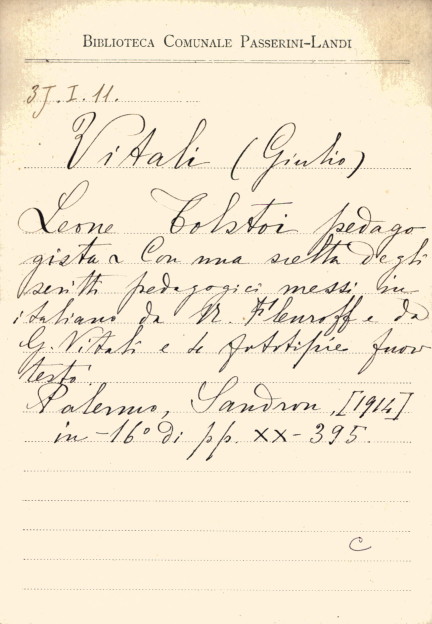 BIBLIOTECA COMUNALE PASSERINI-LANDI
3J.I.11.
Vitali (Giulio)
Leone Tolstoi pedago
gista Con una scelta degli
scritti pedagogici messi in
italiano da N. Fleuroff e da
G. Vitali e fototipie fuor
testo.
Palermo, Sandron, [1914]
in-16° di pp. XX-395.
C